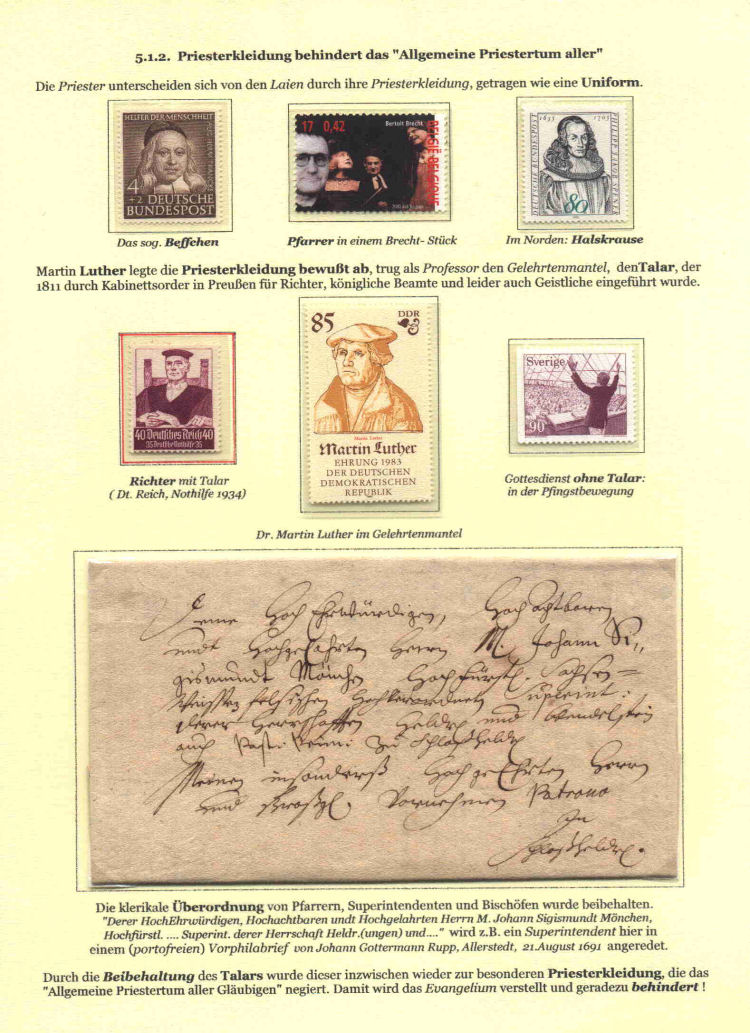 5.1.2. Priesterkleidung behindert das "Allgemeine Priestertum aller"
Die Priester unterscheiden sich von den Laien durch ihre Priesterkleidung, getragen wie eine Uniform.
HELFER DER MENSCHHEIT
4
+2 DEUTSCHE
BUNDESPOST
17 0,42
Bertolt Brecht
BELGIË-BELGIQUE
1635 1705
DEUTSCHE BUNDESPOST
80
Das sog. Beffchen
Pfarrer in einem Brecht- Stück
Im Norden: Halskrause
Martin Luther legte die Priesterkleidung bewußt ab, trug als Professor den Gelehrtenmantel, denTalar, der
1811 durch Kabinettsorder in Preußen für Richter, königliche Beamte und leider auch Geistliche eingeführt wurde.
40 Deutsches Reich 40
35 Deutsche Nothilfe 35
85
DDR
Martin Luther
Martin Luther
EHRUNG 1983
DER DEUTSCHEN
DEMOKRATISCHEN
REPUBLIK
Sverige
90
Richter mit Talar
( Dt. Reich, Nothilfe 1934)
Gottesdienst ohne Talar:
in der Pfingstbewegung
Dr. Martin Luther im Gelehrtenmantel
Hoch Ehrwürdigen, Hochachtbaren
undt Hochgelahrten Herrn M. Johann Si,,
gismundt Mönchen Hochfürstl. Sachsen=
derer Herrschafften Heldr. und Wendelstein
auch Past. zu
Meinen insonderß Hochgeehrten Herrn
und Vornehmen Patrono
In
Die klerikale Überordnung von Pfarrern, Superintendenten und Bischöfen wurde beibehalten.
"Derer HochEhrwürdigen, Hochachtbaren undt Hochgelahrten Herrn M. Johann Sigismundt Mönchen,
Hochfürstl. .... Superint. derer Herrschaft Heldr.(ungen) und...." wird z.B. ein Superintendent hier in
einem (portofreien) Vorphilabrief von Johann Gottermann Rupp, Allerstedt, 21.August 1691 angeredet.
Durch die Beibehaltung des Talars wurde dieser inzwischen wieder zur besonderen Priesterkleidung, die das
"Allgemeine Priestertum aller Gläubigen" negiert. Damit wird das Evangelium verstellt und geradezu behindert !